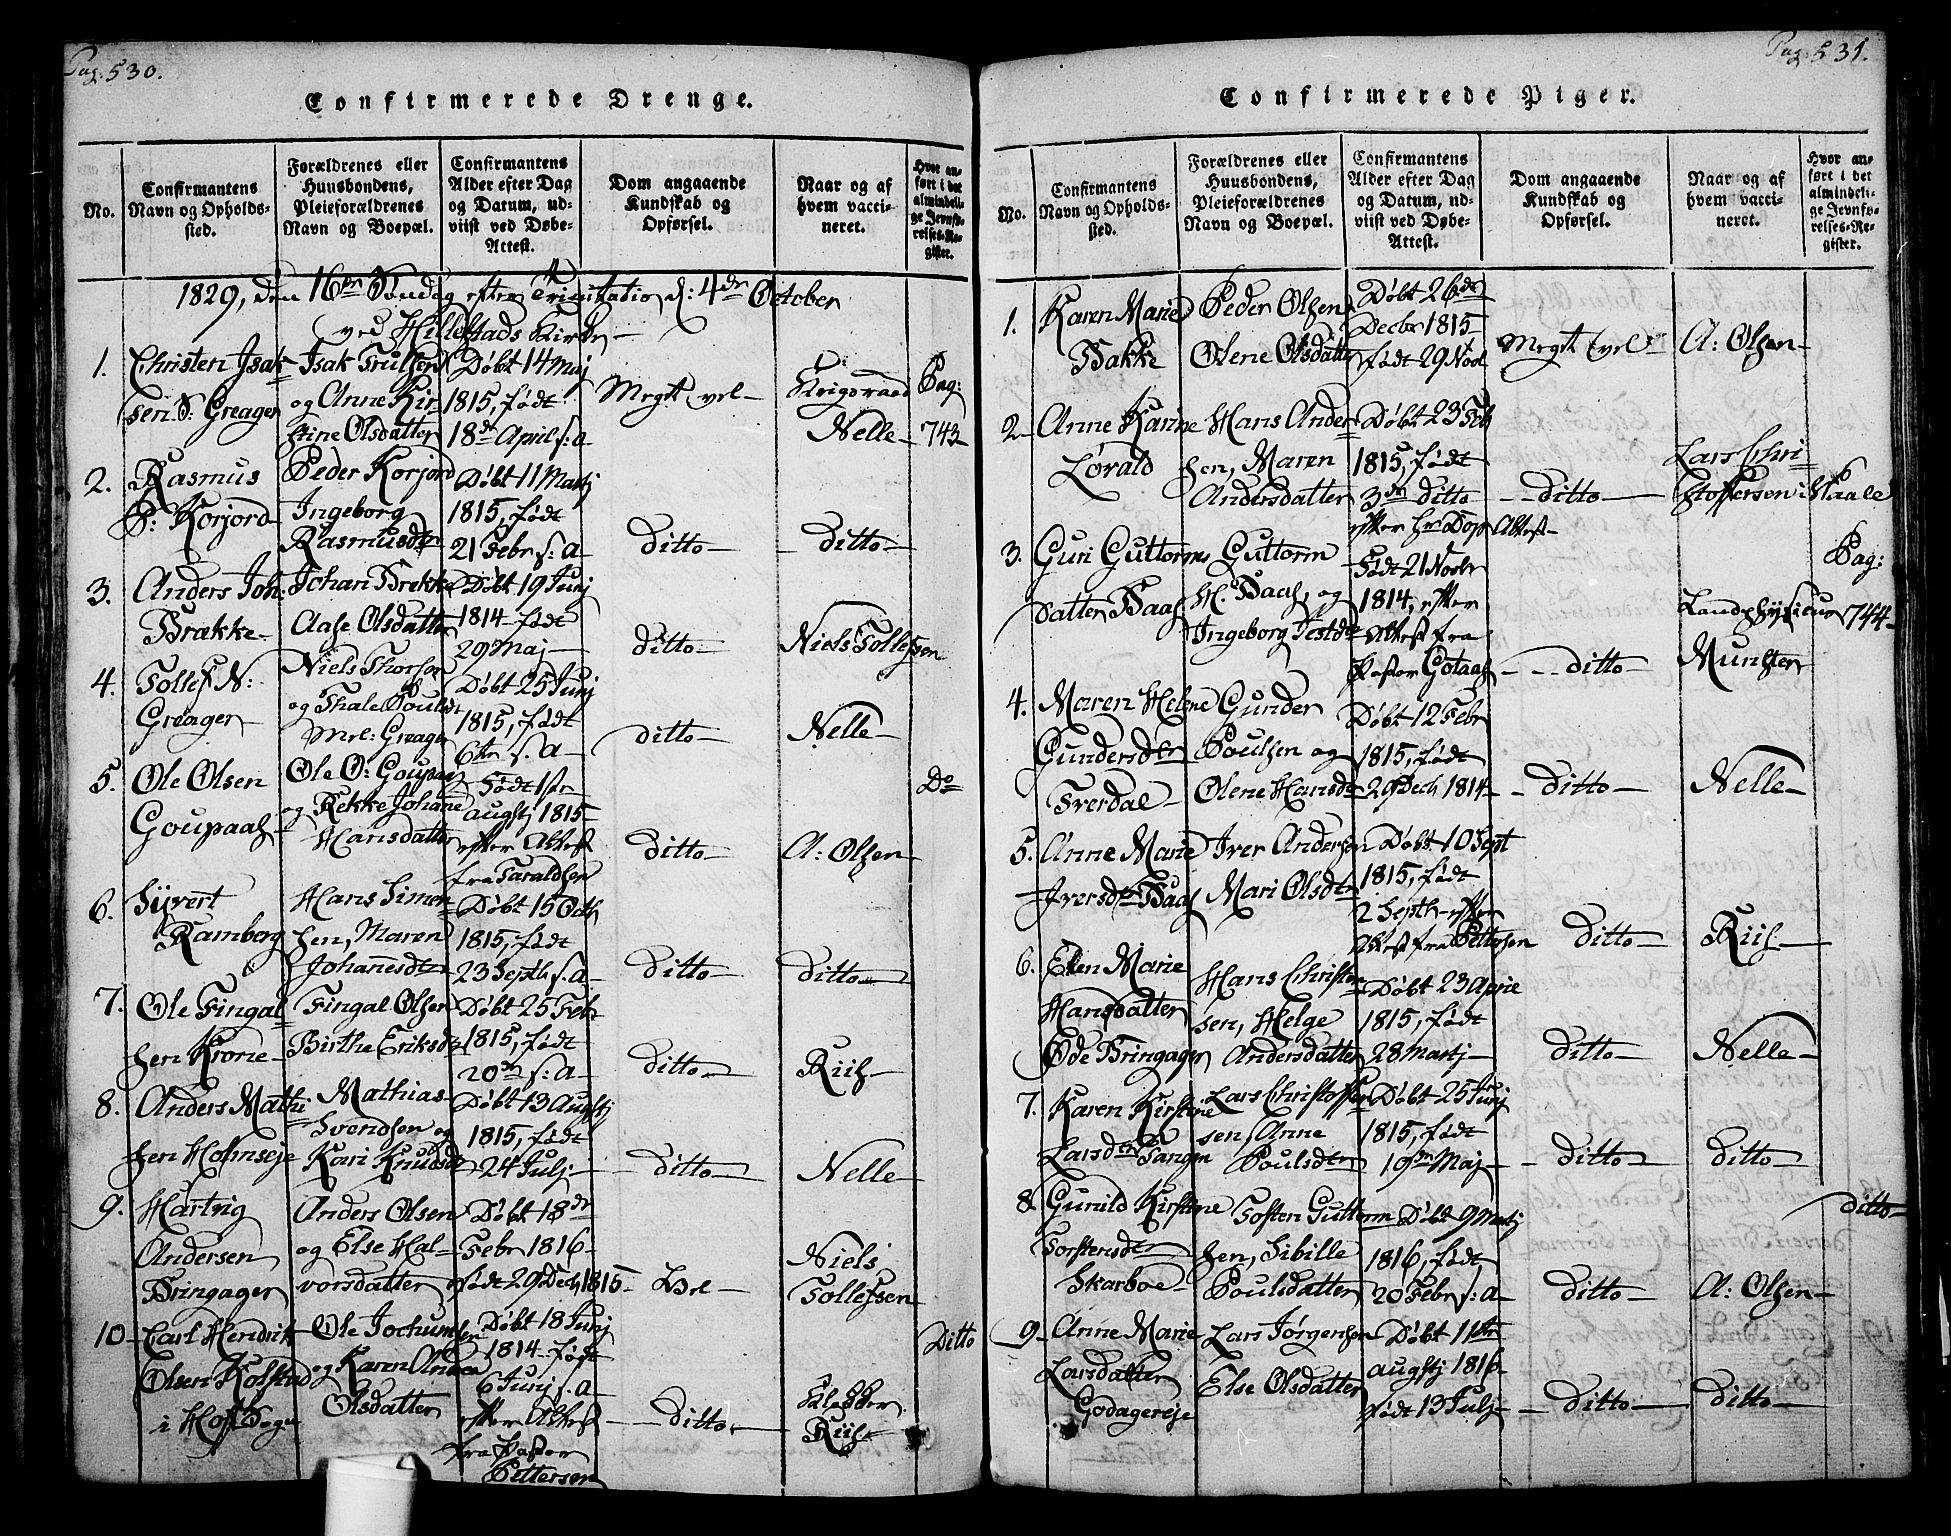 Pag. 530.
Confirmerede Drenge.
No.
Confirmantens
Navn og Opholds-
sted.
Forældrenes eller
Huusbondens,
Pleieforældrenes
Navn og Boepæl.
Confirmantens
Alder efter Dag
og Datum, ud-
viist ved Døbe-
Attest.
Dom angaaende
Kundskab og
Opførsel.
Naar og af
hvem vacci-
neret.
Hvor an-
ført i det
almindeli-
ge Jevnfø-
relses-Re-
gister.
1829, den 16de Søndag efter Trinitatis d: 4de October
ved Hillestads Kirke
1.
Christen Isak-
sen S: Greager
Isak Trulsen
og Anne Kir-
stine Olsdatter
Døbt 14 Maj
1815, født
18de April s: a
Meget vel
Krigsraad
Nelle
Pag:
743
2.
Rasmus
P: Korjord
Peder Korjord
Ingeborg
Rasmusdtr
Døbt 11 Martj
1815, født
21 Febr s: a
ditto
ditto
3.
Anders Joh:
Brække
Johan Brekke
Aase Olsdatter
Døbt 19 Junj
1814 født
29 Maj
ditto
Niels Tollefsen
4.
Tollef N:
Greager
Niels Thorsen
og Thale Poulsdt
Greager
Døbt 25 Junj
1815, født
6te s. a
ditto
Nelle
5.
Ole Olsen
Goupaas
Ole O: Goupaas
og Rekke Johane
Hansdatter
Født 1ste
augstj 1815
efter Attest
fra Taraldsen
ditto
A: Olsen
Do
6.
Syvert
Ramberg
Hans Simon-
sen, Maren
Johanesdtr
Døbt 15 Octb
1815, født
23 Septb s: a
ditto
ditto
7.
Ole Fingal-
sen Krone
Fingal Olsen
Birthe Eriksdtr
Døbt 25 Feb
1815, født
20de s: a
ditto
Riis
8.
Anders Mathi-
sen Holmseje
Mathias
Svendsen og
Kari Knudsdt
Døbt 13 Augstj
1815, født
24 Julj
ditto
Nelle
9.
Hartvig
Andersen
Bringager
Anders Olsen
og Else Hal-
vorsdatter
Døbt 18de
Febr 1816
født 29 Decb 1815
Vel
Niels
Tollefsen
10
Carl Hendrik
Olsen Kolstad
i Hofs Sogn
Ole Jochumsen
og Karen
Olsdatter
Døbt 18 Junj
1814 født
6 Junj s. a
efter Attest
fra Pastor
Pettersen
ditto
Klokker
Riis
Ditto
Pag. 531.
Confirmerede Piger.
No.
Confirmantens
Navn og Opholds-
sted.
Forældrenes eller
Huusbondens,
Pleieforældrenes
Navn og Boepæl.
Confirmantens
Alder efter Dag
og Datum, ud-
viist ved Døbe-
Attest.
Dom angaaende
Kundskab og
Opførsel.
Naar og af
hvem vacci-
neret.
Hvor an-
ført i det
almindeli-
ge Jevnfø-
relses-Re-
gister.
1.
Karen Marie
Bakke
Peder Olsen
Olene Olsdatter
Døbt 26de
Decbr 1815
født 29 Novb
Meget vel
A: Olsen
2
Anne Karine
Lørald
Hans Ander-
sen, Maren
Andersdatter
Døbt 23 Feb
1815, født
3de ditto
efter Hr: Attest
ditto
Lars Chri-
stoffersen i Staale
3.
Guri Guttorms
datter Baas
Guttorm
H. Baas, og
Ingeborg
Født 21 Novbr
1814, efter
Attest fra
Pastor Gotaas
ditto
Landphysicus
Munster
Pag:
744
4.
Maren Helene
Gundersdtr
Tverdal
Gunder
Poulsen og
Olene Hansdt
Døbt 12 Febr
1815, født
29 Decb 1814
ditto
Nelle
5.
Anne Marie
Iversdtr Baas
Iver Andersen
Mari Olsdtr
Døbt 10 Sept
1815, født
2 Septb efter
Attest fra Pettersen
ditto
Riis
6.
Elen Marie
Hansdatter
Øde Bringager
Hans Christen-
sen, Helge
Andersdatter
Døbt 23 April
1815, født
28 Martj
ditto
Nelle
7.
Karen Kirstine
Larsdtr Tangen
Lars Christoffer-
sen, Anne
Poulsdtr
Døbt 25 Junj
1815, født
19de Maj
ditto
ditto
8.
Gunild Kirstine
Torstensdtr
Skarboe
Tosten Guttorm-
sen, Sibille
Poulsdatter
Døbt 9 Martj
1816, født
20 Febr s: a
ditto
A: Olsen
ditto
9
Anne Marie
Larsdatter
Godagereje
Lars Jørgensen
Else Olsdatter
Døbt 11te
augstj 1816
født 13 Julj
ditto
ditto